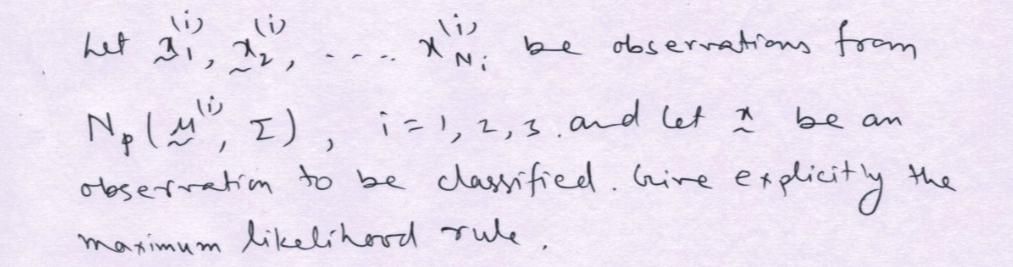 Let x₁⁽ⁱ⁾, x₂⁽ⁱ⁾, .... x_Nᵢ⁽ⁱ⁾ be observations from
Nₚ(μ⁽ⁱ⁾, Σ), i = 1, 2, 3. and let x be an
observation to be classified. Give explicitly the
maximum likelihood rule.